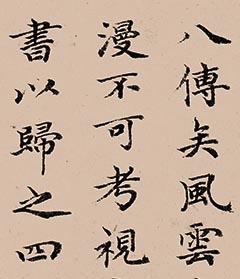 八傳矣風雲
漫不可考視
書以歸之四